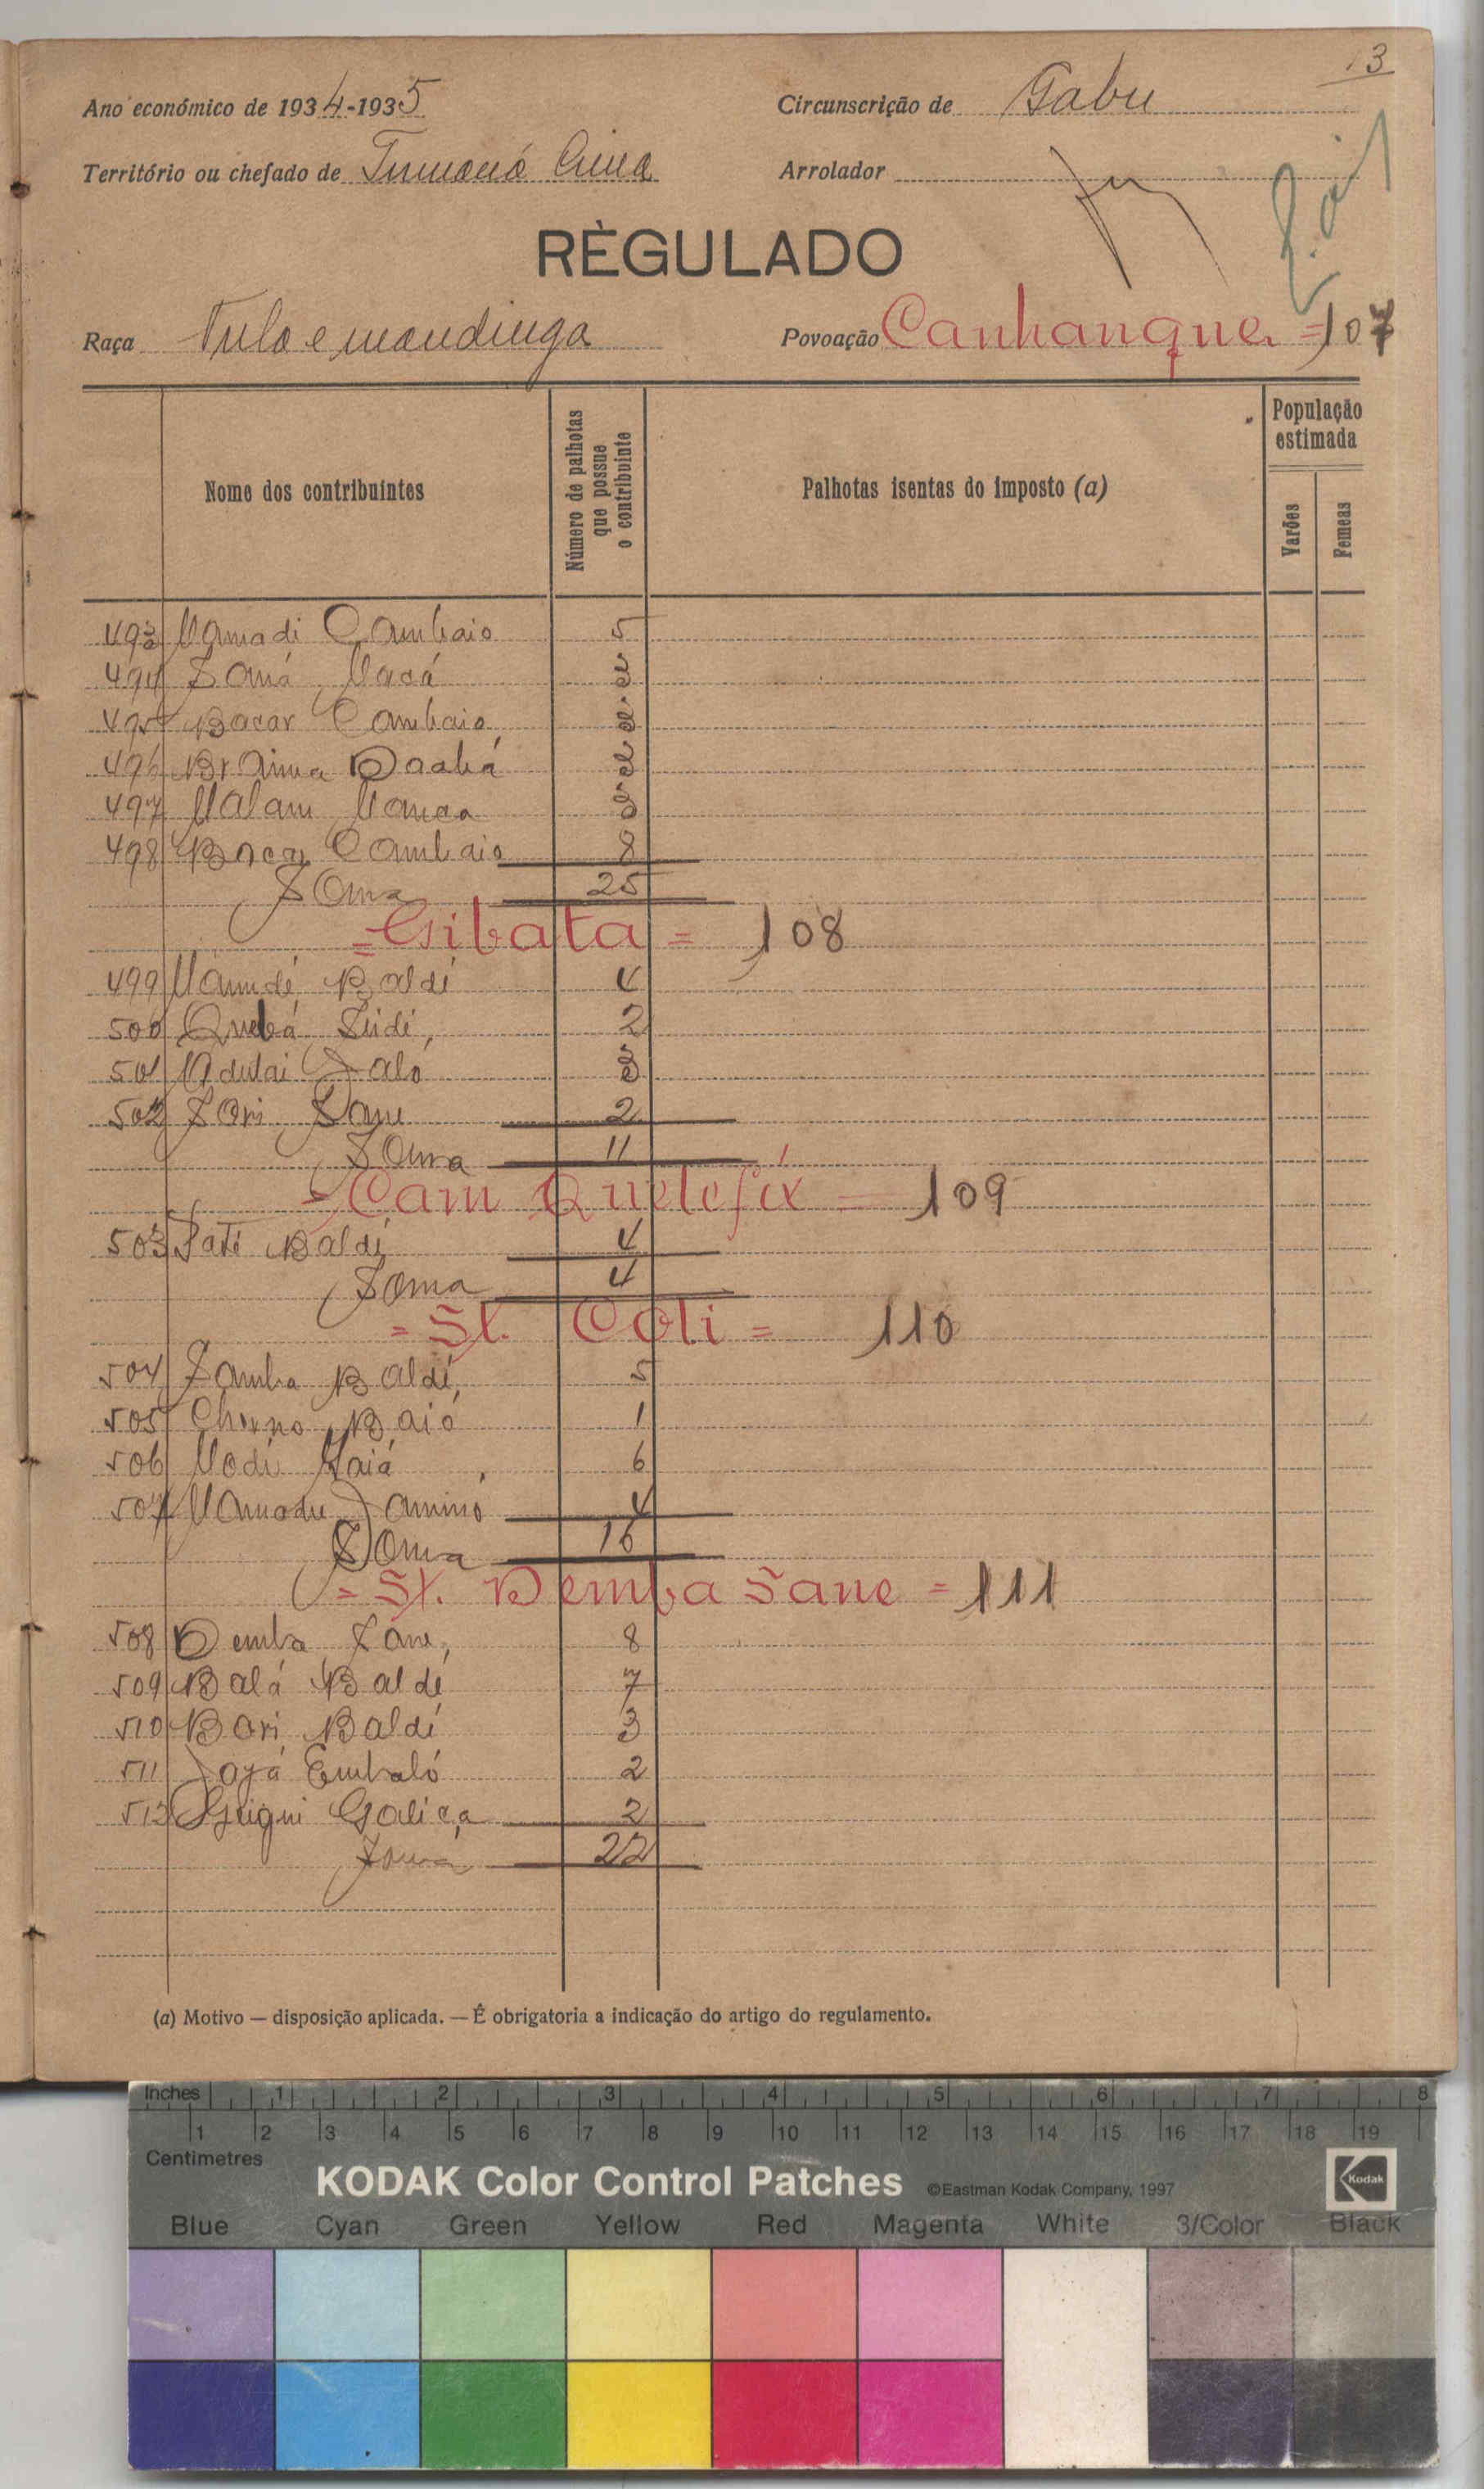 13
Ano económico de 1934-1935 Circunscrição de Gabu
Território ou chefado de Tumaná Cima Arrolador
RÈGULADO
Raça Fula e mandinga Povoação Canhanque =107
Nome dos contribuintes
Número de palhotas que possue o contribuinte
Palhotas isentas do imposto (a)
População estimada
Varões
Femeas
493 Mamadi Cambaio 5
494 Saná Macá
495 Bacar Cambaio
496 Braima Daabá
497 Malam Manca
498 Cambaio 8
Soma 25
108
499 Mamudé Baldé 4
500 Quebá Seidi 2
501 Adulai Jaló 3
502 Sori Sane 2
Soma 11
= Cam Quelefix = 109
503 Paté Baldé 4
Soma 4
= St. Coli = 110
504 Samba Baldé 5
505 Cherno Baió 1
506 Modi Maiá 6
507 Mamadu 4
Soma 16
= St. Demba Sane = 111
508 Demba Sane 8
509 Balá Baldé 7
510 Bori Baldé 3
511 Jajá Embaló 2
512 Galiça 2
Soma 22
(a) Motivo — disposição aplicada. — É obrigatoria a indicação do artigo do regulamento.
Inches 1 2 3 4 5 6 7 8
1 2 3 4 5 6 7 8 9 10 11 12 13 14 15 16 17 18 19
Centimetres
KODAK Color Control Patches ©Eastman Kodak Company, 1997 Kodak
Blue Cyan Green Yellow Red Magenta White 3/Color Black